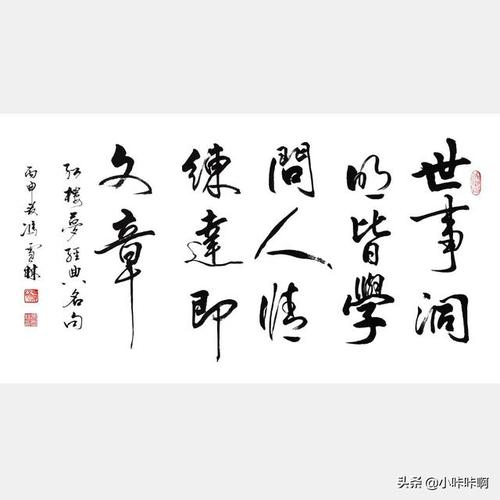 世事洞
明皆學
問人情
練達即
文章
紅樓夢經典名句
丙申歲馮雪林
头条@小咔咔啊